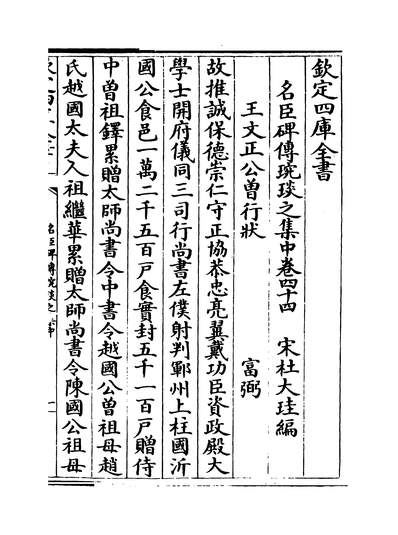 欽定四庫全書
名臣碑傳琬琰之集中卷四十四　宋杜大珪編
王文正公曾行狀　富弼
故推誠保德崇仁守正協恭忠亮翼戴功臣資政殿大
學士開府儀同三司行尚書左僕射判鄆州上柱國沂
國公食邑一萬二千五百戶食實封五千一百戶贈侍
中曾祖鐸累贈太師尚書令中書令越國公曾祖母趙
氏越國太夫人祖繼華累贈太師尚書令陳國公祖母
名臣碑傳琬琰之集中
一